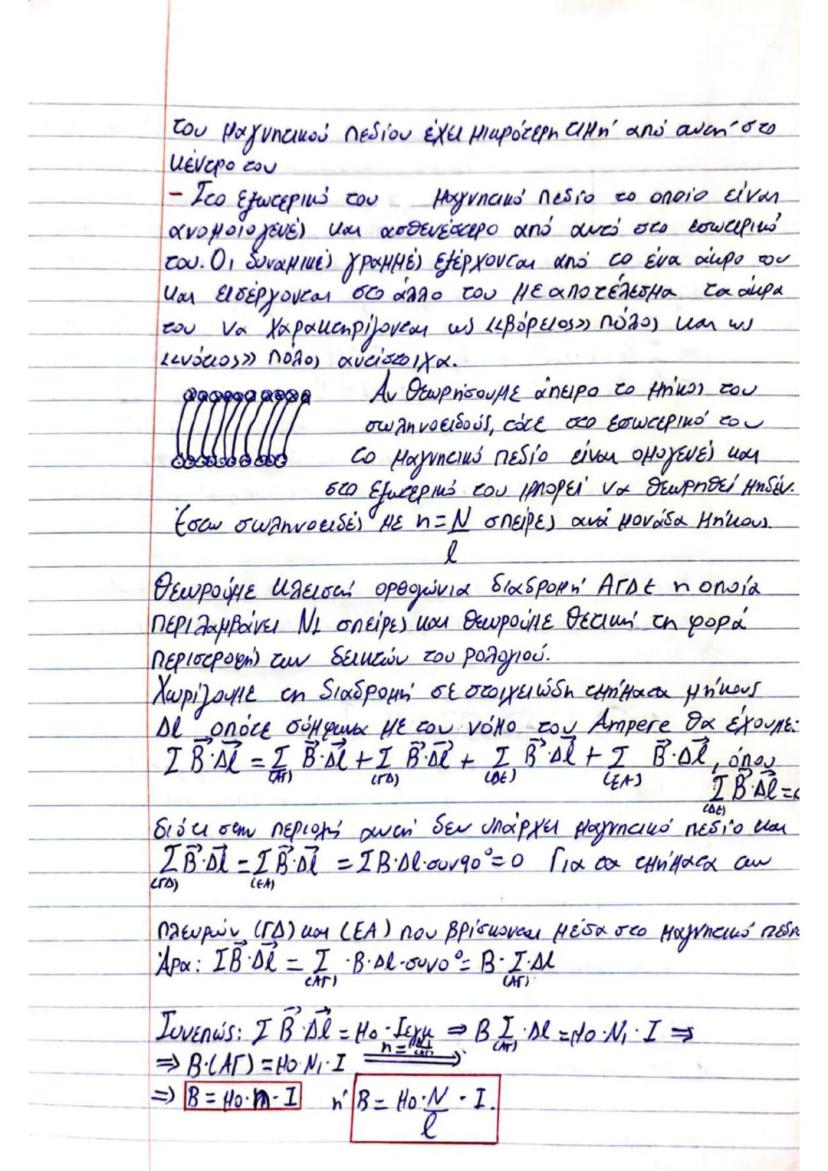 του μαγνητικού πεδίου έχει μικρότερη τιμή από αυτή στο
κέντρο του
- Στο εξωτερικό του μαγνητικό πεδίο το οποίο είναι
ανομοιογενές και ασθενέστερο από αυτό στο εσωτερικό
του. Οι δυναμικές γραμμές εξέρχονται από το ένα άκρο του
και εισέρχονται στο άλλο του με αποτέλεσμα τα άκρα
του να χαρακτηρίζονται ως «βόρειος» πόλος και ως
«νότιος» πόλος αντίστοιχα.
Αν θεωρήσουμε άπειρο το μήκος του
σωληνοειδούς, τότε στο εσωτερικό του
το μαγνητικό πεδίο είναι ομογενές και
στο εξωτερικό του μπορεί να θεωρηθεί μηδέν.
Έστω σωληνοειδές με n = N/l σπείρες ανά μονάδα μήκους.
Θεωρούμε κλειστή ορθογώνια διαδρομή ΑΓΔΕ η οποία
περιλαμβάνει N₁ σπείρες και θεωρούμε θετική τη φορά
περιστροφής των δεικτών του ρολογιού.
Χωρίζουμε τη διαδρομή σε στοιχειώδη τμήματα μήκους
Δl οπότε σύμφωνα με τον νόμο του Ampere θα έχουμε:
Σ B⃗·Δl⃗ = Σ(ΑΓ) B⃗·Δl⃗ + Σ(ΓΔ) B⃗·Δl⃗ + Σ(ΔΕ) B⃗·Δl⃗ + Σ(ΕΑ) B⃗·Δl⃗, όπου
Σ(ΔΕ) B⃗·Δl⃗ =
διότι στην περιοχή αυτή δεν υπάρχει μαγνητικό πεδίο και
Σ(ΓΔ) B⃗·Δl⃗ = Σ(ΕΑ) B⃗·Δl⃗ = ΣB·Δl·συν90° = 0 Για τα τμήματα των
πλευρών (ΓΔ) και (ΕΑ) που βρίσκονται μέσα στο μαγνητικό πεδίο
Άρα: ΣB⃗·Δl⃗ = Σ(ΑΓ) ·B·Δl·συν0° = B·Σ(ΑΓ)·Δl
Συνεπώς: Σ B⃗·Δl⃗ = μ₀·Iεγκ ⇒ B Σ(ΑΓ)·Δl = μ₀·N₁·I ⇒
⇒ B·(ΑΓ) = μ₀·N₁·I n = N₁/(ΑΓ) ⇒
⇒ B = μ₀·n·I ή B = μ₀·N/l·I.